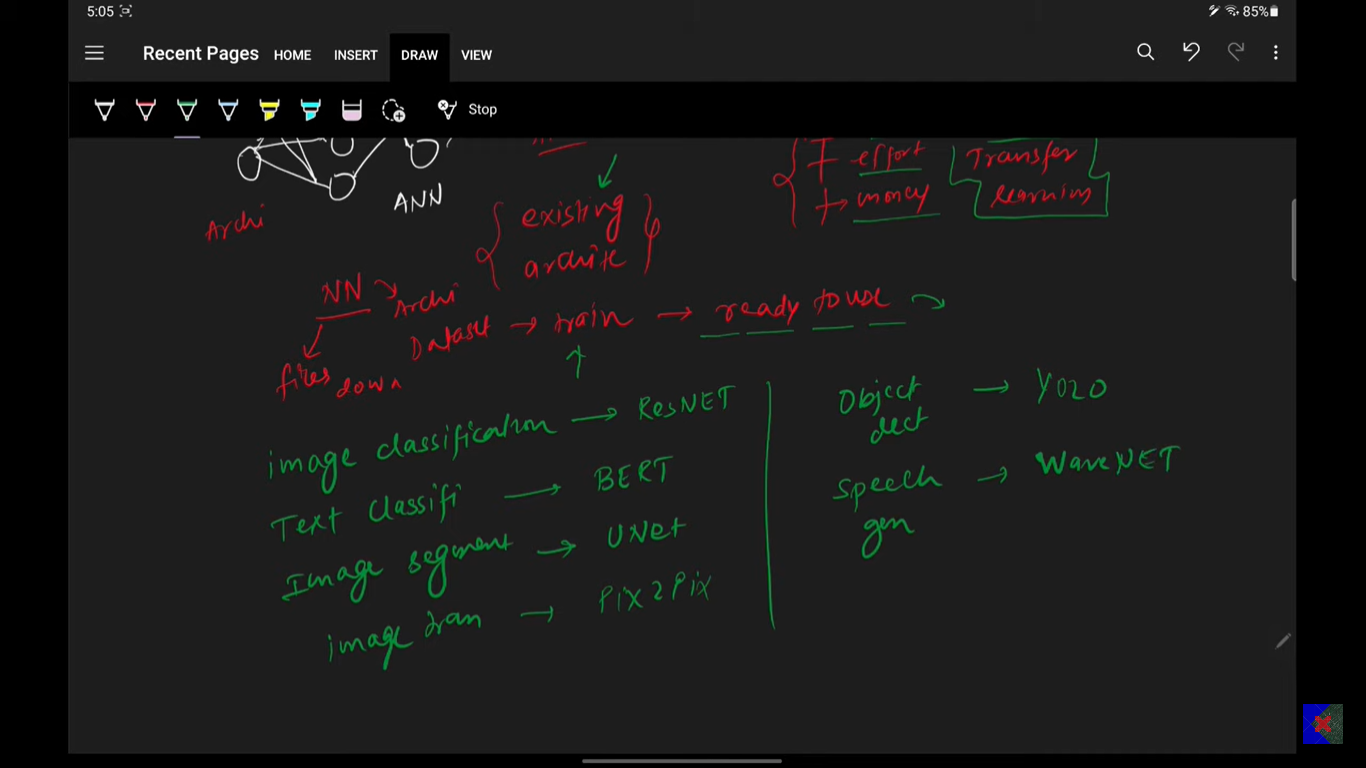 5:05
85%
Recent Pages HOME INSERT DRAW VIEW
Stop
ANN
Archi
existing
archite
effort
money
Transfer
learning
NN
Archi
fires down
Dataset → train → ready to use
image classification → ResNET
Text classifi → BERT
Image segment → UNet
image tran → Pix2Pix
Object dect → YOLO
Speech gen → WaveNET